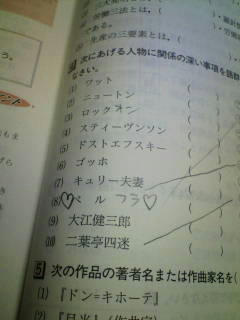 (4) 労働三法とは,(
である。
(5) 生産の三要素とは,(
4 次にあげる人物に関係の深い事項を語群
なさい。
(1) ワット ( )
(2) ニュートン ( )
(3) ロックオン ( )
(4) スティーヴンソン ( )
(5) ドストエフスキー ( )
(6) ゴッホ ( )
(7) キュリー夫妻 ( )
(8)♡ベルフラ♡ ( )
(9) 大江健三郎 ( )
(10) 二葉亭四迷 ( )
5 次の作品の著者名または作曲家名を(
(1) 『ドン=キホーテ』